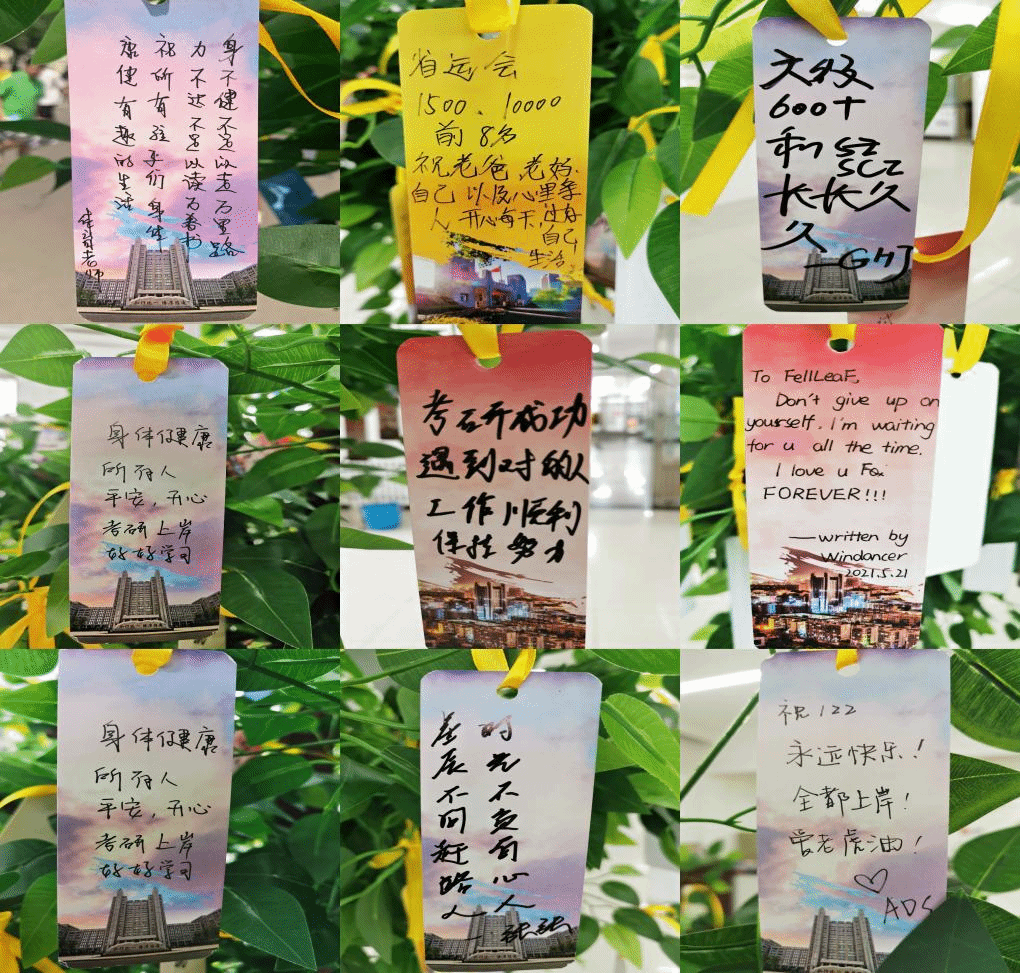 身不健不足以走万里路
力不达不足以读万卷书
祝所有莘子们身体
康健有趣的生活
老师
省运会
1500、10000
前8名
祝老爸、老妈、
自己以及心里季
人开心每天,过好
自己
生活
六级
600+
和SZ
SCZ
长长久
久
—GHJ
身体健康
所有人
平安,开心
考研上岸
好好学习
考研成功
遇到对的人
工作顺利
保持努力
To FellLeaF,
Don't give up on
yourself. I'm waiting
for u all the time.
I love u Fox
FOREVER!!!
—written by
Windancer
2021.5.21
身体健康
所有人
平安,开心
考研上岸
好好学习
时光不负有心人
星辰不问赶路人
张张
祝122
永远快乐!
全都上岸!
爱老虎油!
ADS